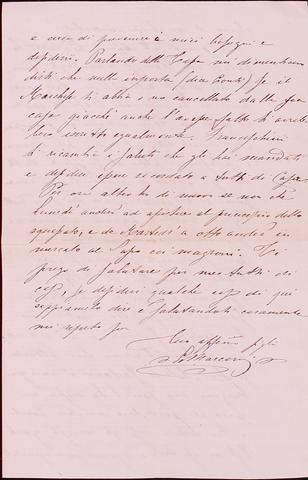 e cerca di prevenire i miei bisogni e
desideri. Parlando della Casa mi dimenticavo
dirti che nulla importa (dice Conti) se il
Marchese ti abbia o no cancellato dalla sua
casa giacché anche l'avesse fatto ti avreb
bero iscritto egualmente. Franceschini
ti ricambia i saluti che gli hai mandato
e desidera esser ricordato a tutti di Casa.
Per ora altro ho di nuovo se non che
Lunedì andrò ad aspettare il principio dello
e da Martedì a otto andrò in
mercato al Sapo coi magroni. Ti
prego di salutare per me tutti di
casa, se desideri qualche cosa di qui
sappiamelo dire e salutandoti caramente
mi ripeto per
Tuo affmo figlio
Marconi